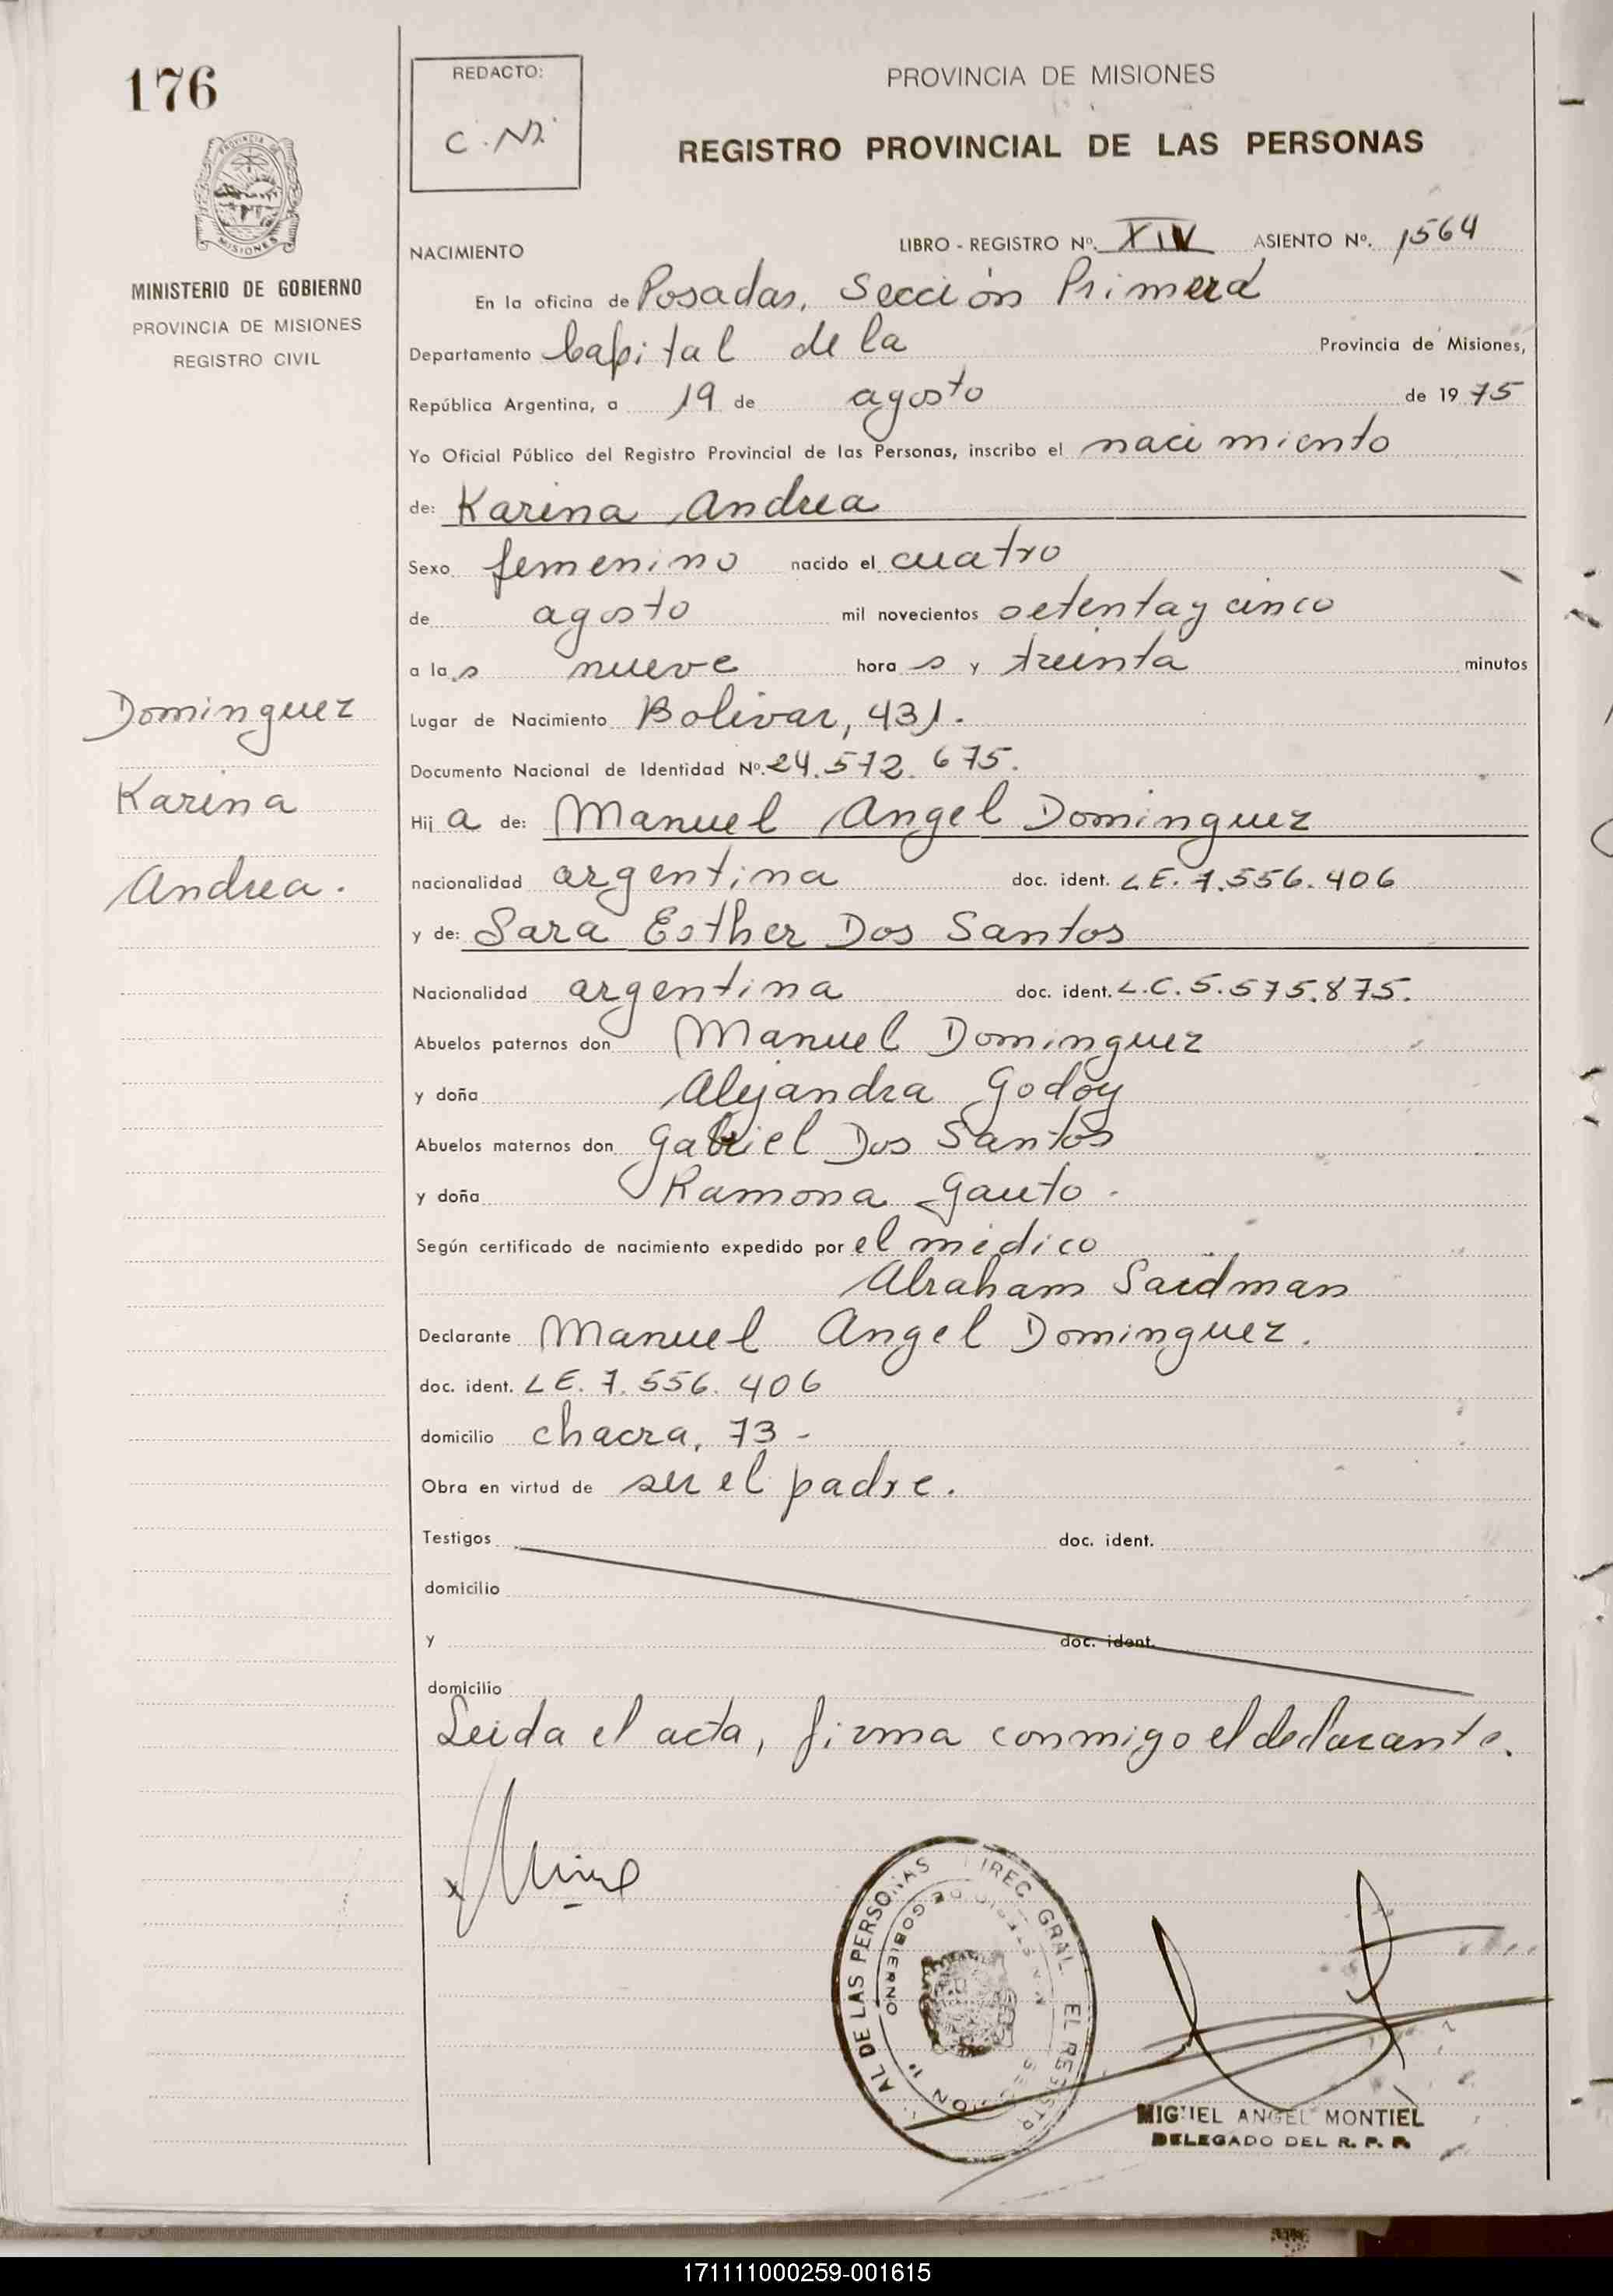 176
REDACTO:
C. Ni.
PROVINCIA DE MISIONES
REGISTRO PROVINCIAL DE LAS PERSONAS
PROVINCIA DE MISIONES
MINISTERIO DE GOBIERNO
PROVINCIA DE MISIONES
REGISTRO CIVIL
NACIMIENTO LIBRO - REGISTRO Nº. XIV ASIENTO Nº. 1564
En la oficina de Posadas, Sección Primera
Departamento Capital de la Provincia de Misiones,
República Argentina, a 19 de agosto de 1975
Yo Oficial Público del Registro Provincial de las Personas, inscribo el nacimiento
de: Karina Andrea
Sexo femenino nacido el cuatro
de agosto mil novecientos setenta y cinco
a las nueve horas y treinta minutos
Lugar de Nacimiento Bolivar, 431.
Documento Nacional de Identidad Nº. 24.572.675.
Hija de: Manuel Angel Dominguez
nacionalidad argentina doc. ident. LE. 7.556.406
y de: Sara Esther Dos Santos
Nacionalidad argentina doc. ident. L.C. 5.575.875.
Abuelos paternos don Manuel Dominguez
y doña Alejandra Godoy
Abuelos maternos don Gabriel Dos Santos
y doña Ramona Gauto.
Según certificado de nacimiento expedido por el médico
Abraham Saidman
Declarante Manuel Angel Dominguez.
doc. ident. LE. 7.556.406
domicilio chacra, 73 -
Obra en virtud de ser el padre.
Testigos doc. ident.
domicilio
y doc. ident.
domicilio
Leida el acta, firma conmigo el declarante.
Dominguez
Karina
Andrea.
DIREC. GRAL. DEL REGISTRO PROVINCIAL DE LAS PERSONAS
MINISTERIO DE GOBIERNO
SECCION 1ª
MIGUEL ANGEL MONTIEL
DELEGADO DEL R. P. P.
171111000259-001615